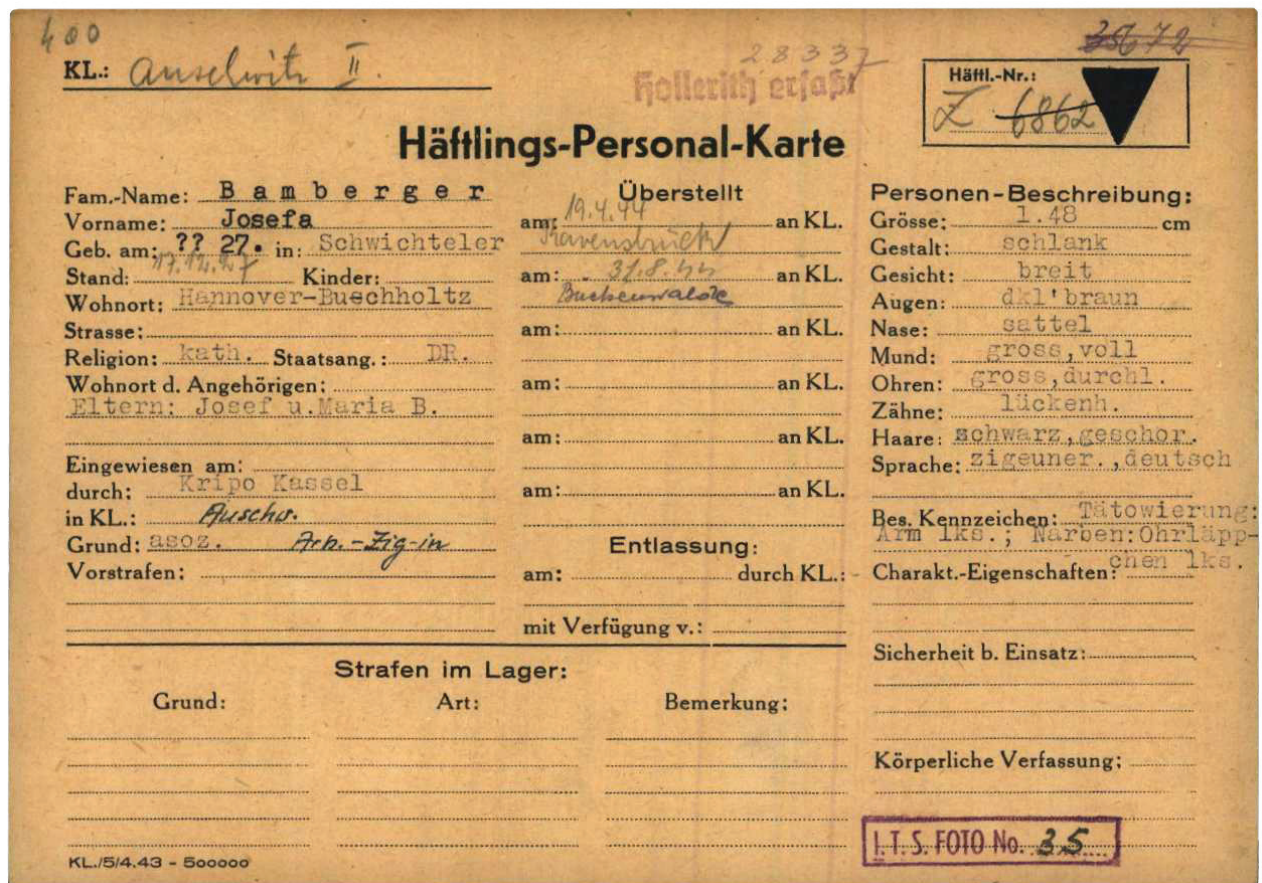 400
KL.: Auschwitz II.
28337
Hollerith erfaßt
35672
Häftl.-Nr.:
Z 6862
Häftlings-Personal-Karte
Fam.-Name: Bamberger
Vorname: Josefa
Geb. am: ?? 27. in: Schwichteler
17.12.27
Stand: Kinder:
Wohnort: Hannover-Buechholtz
Strasse:
Religion: kath. Staatsang.: DR.
Wohnort d. Angehörigen:
Eltern: Josef u.Maria B.
Eingewiesen am:
durch: Kripo Kassel
in KL.: Auschw.
Grund: asoz. Arb.-Zig-in
Vorstrafen:
Überstellt
am: 19.4.44 an KL.
Ravensbrück
am: 31.8.44 an KL.
Buchenwalde
am: an KL.
am: an KL.
am: an KL.
am: an KL.
Entlassung:
am: durch KL.:
mit Verfügung v.:
Personen-Beschreibung:
Grösse: 1.48 cm
Gestalt: schlank
Gesicht: breit
Augen: dkl'braun
Nase: sattel
Mund: gross,voll
Ohren: gross,durchl.
Zähne: lückenh.
Haare: schwarz,geschor.
Sprache: zigeuner.,deutsch
Bes. Kennzeichen: Tätowierung:
Arm lks.; Narben:Ohrläpp-
chen lks.
Charakt.-Eigenschaften:
Sicherheit b. Einsatz:
Körperliche Verfassung:
Strafen im Lager:
Grund: Art: Bemerkung:
I.T.S. FOTO No. 35
KL./5/4.43 - 500000